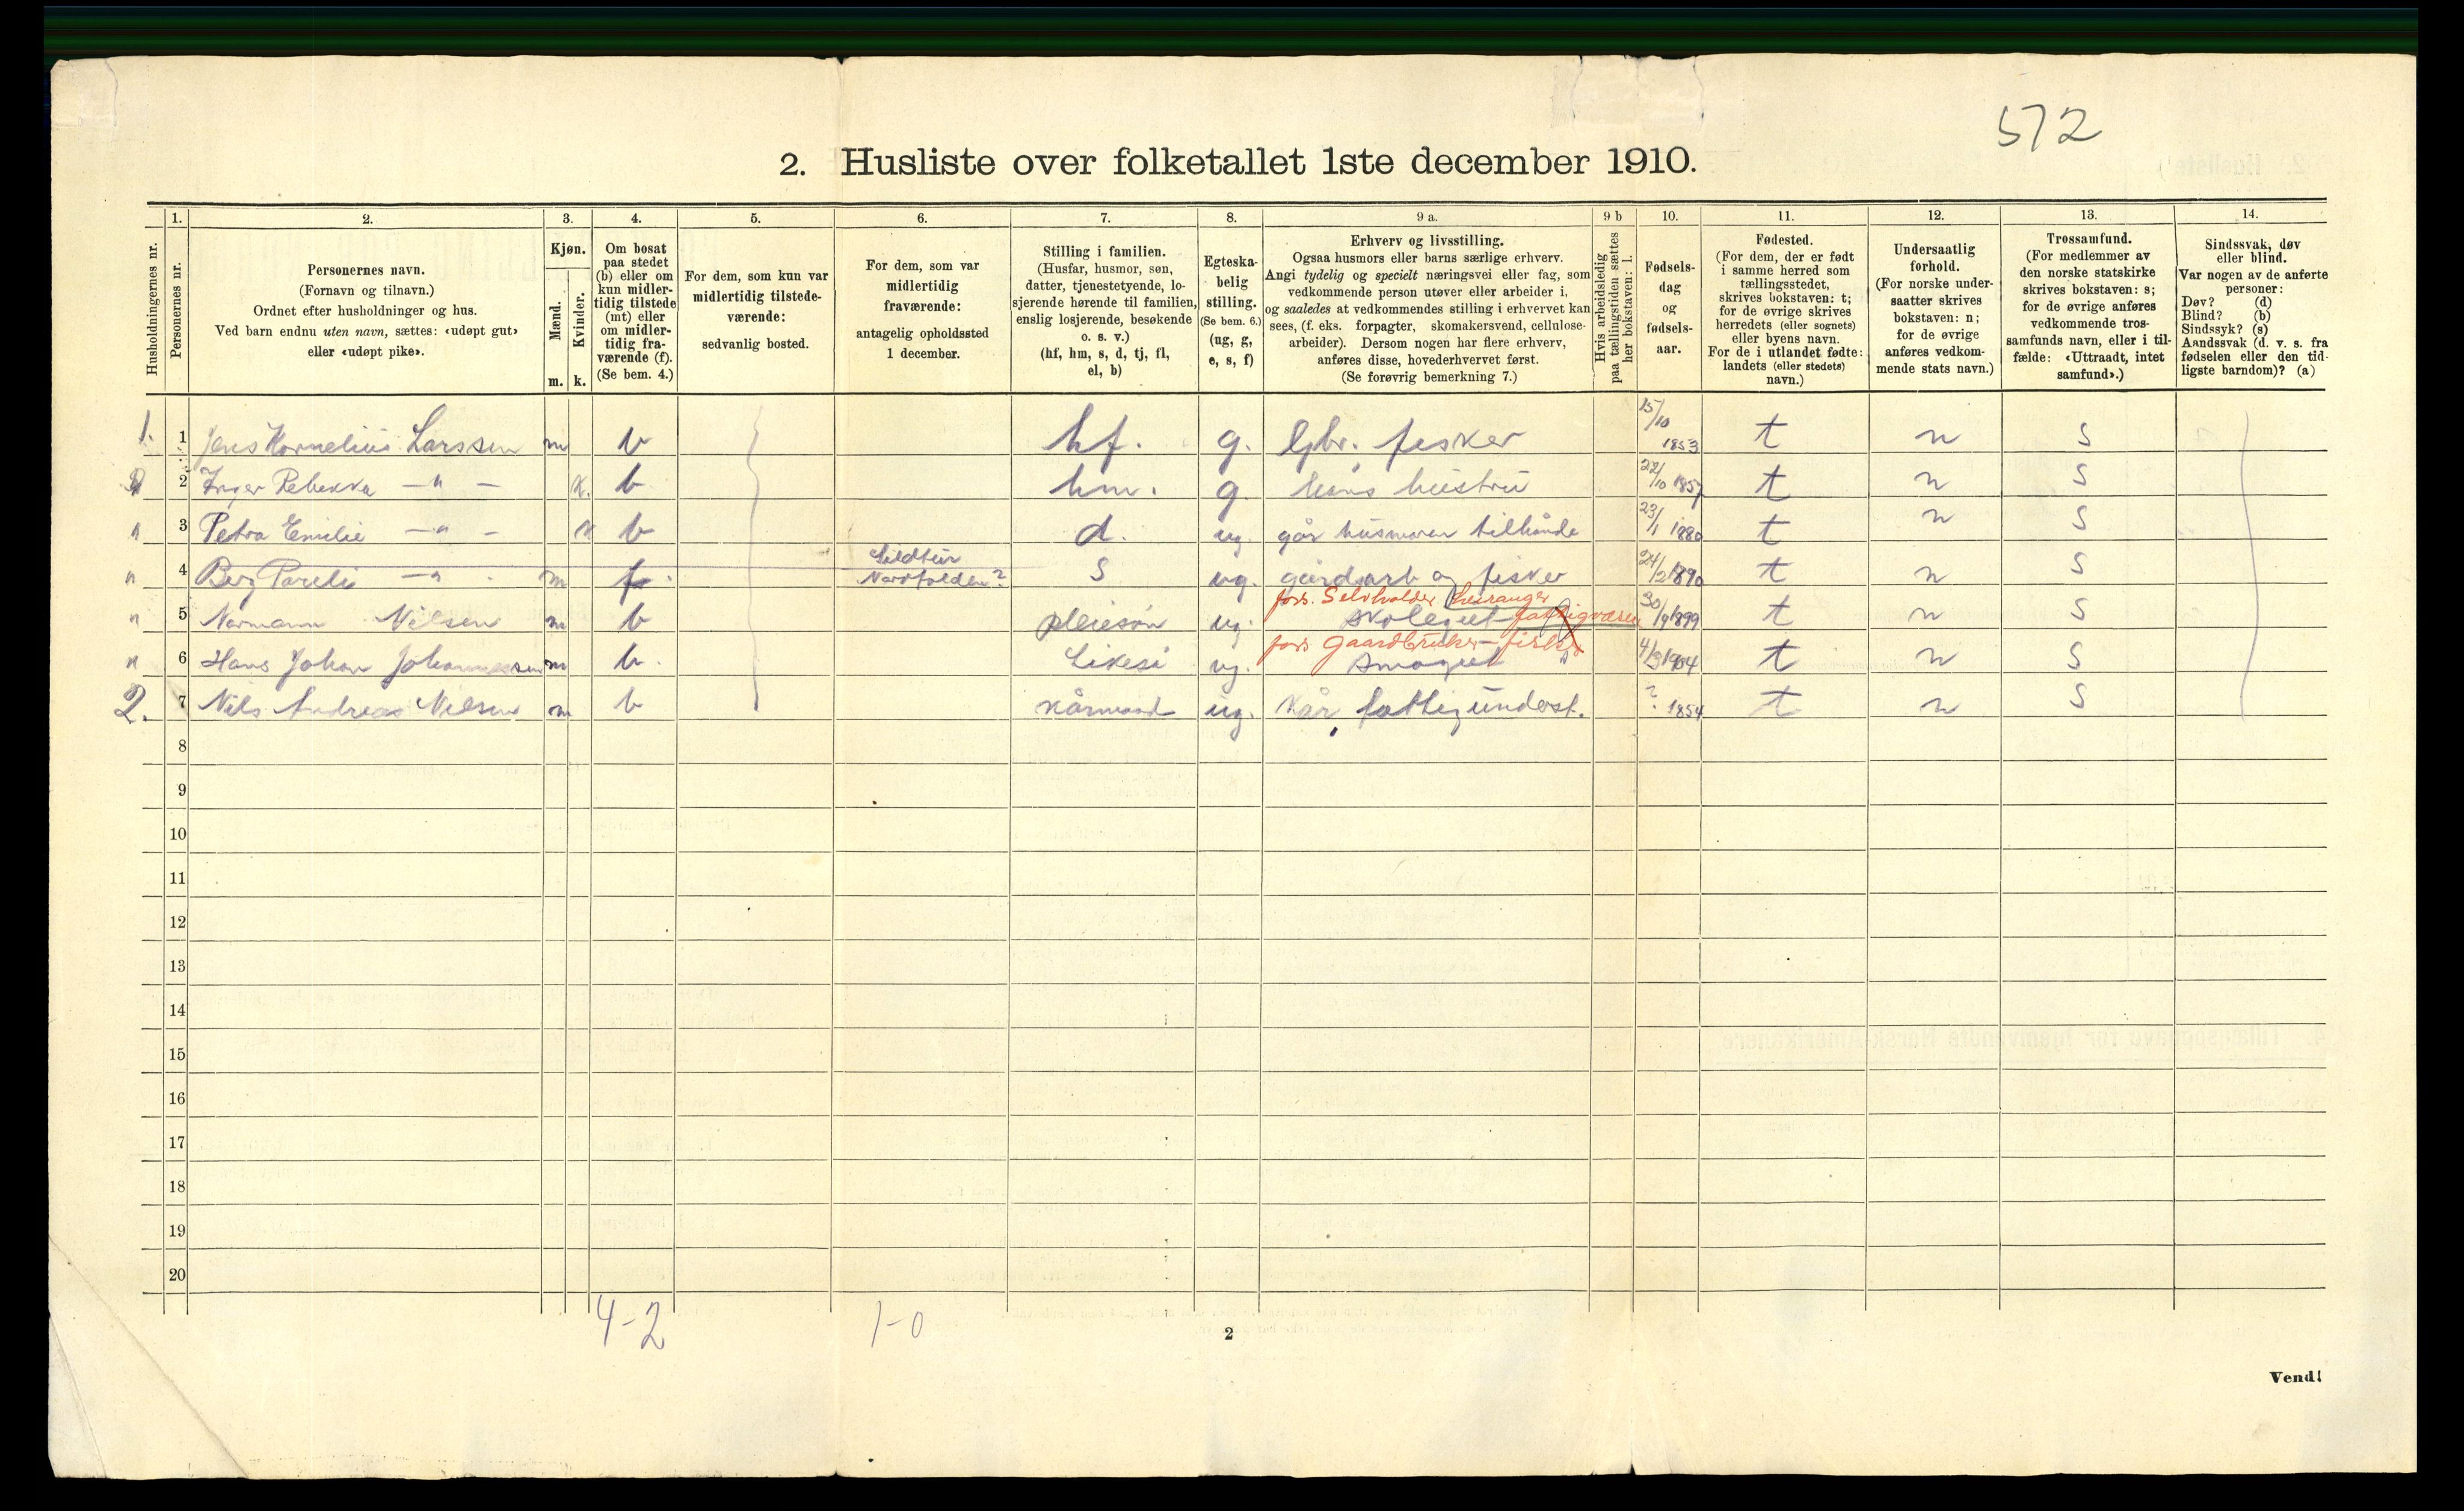 572
2. Husliste over folketallet 1ste december 1910.
Husholdningernes nr.
1. Personernes nr.
2. Personernes navn.
(Fornavn og tilnavn.)
Ordnet efter husholdninger og hus.
Ved barn endnu uten navn, sættes: «udøpt gut»
eller «udøpt pike».
3. Kjøn.
Mænd. m.
Kvinder. k.
4. Om bosat
paa stedet
(b) eller om
kun midler-
tidig tilstede
(mt) eller
om midler-
tidig fra-
værende (f).
(Se bem. 4.)
5. For dem, som kun var
midlertidig tilstede-
værende:
sedvanlig bosted.
6. For dem, som var
midlertidig
fraværende:
antagelig opholdssted
1 december.
7. Stilling i familien.
(Husfar, husmor, søn,
datter, tjenestetyende, lo-
sjerende hørende til familien,
enslig losjerende, besøkende
o. s. v.)
(hf, hm, s, d, tj, fl,
el, b)
8. Egteska-
belig
stilling.
(Se bem. 6.)
(ug, g,
e, s, f)
9 a. Erhverv og livsstilling.
Ogsaa husmors eller barns særlige erhverv.
Angi tydelig og specielt næringsvei eller fag, som
vedkommende person utøver eller arbeider i,
og saaledes at vedkommendes stilling i erhvervet kan
sees, (f. eks. forpagter, skomakersvend, cellulose-
arbeider). Dersom nogen har flere erhverv,
anføres disse, hovederhvervet først.
(Se forøvrig bemerkning 7.)
9 b Hvis arbeidsledig
paa tællingstiden sættes
her bokstaven: l.
10. Fødsels-
dag
og
fødsels-
aar.
11. Fødested.
(For dem, der er født
i samme herred som
tællingsstedet,
skrives bokstaven: t;
for de øvrige skrives
herredets (eller sognets)
eller byens navn.
For de i utlandet fødte:
landets (eller stedets)
navn.)
12. Undersaatlig
forhold.
(For norske under-
saatter skrives
bokstaven: n;
for de øvrige
anføres vedkom-
mende stats navn.)
13. Trossamfund.
(For medlemmer av
den norske statskirke
skrives bokstaven: s;
for de øvrige anføres
vedkommende tros-
samfunds navn, eller i til-
fælde: «Uttraadt, intet
samfund».)
14. Sindssvak, døv
eller blind.
Var nogen av de anførte
personer:
Døv? (d)
Blind? (b)
Sindssyk? (s)
Aandssvak (d. v. s. fra
fødselen eller den tid-
ligste barndom)? (a)
1. 1 Jens Kornelius Larssen m b hf. g. Gbr. fisker 15/10 1853 t n s
2 Inger Rebekka — " — k. b hm. g. hans hustru 22/10 1857 t n s
" 3 Petra Emilie — " — k b d. ug. går husmoren tilhånde 23/1 1880 t n s
" 4 Berg Pareli — " — m f. Sildtur
Nordfolden? s ug. gårdsarb og fisker 24/2 1890 t n s
fors. Selvholder Leiranger
" 5 Normann Nilsen m b pleiesøn ug. skolegut fattigvæsen 30/9 1899 t n s
fors Gaardbruker – fisker
" 6 Hans Johan Johannessen m b. Likeså ug. smågut 4/3 1904 t n s
2. 7 Nils Andreas Nilsen m b kårmand ug. Kår, fattigunderst. ? 1854 t n s
8
9
10
11
12
13
14
15
16
17
18
19
20
4-2 1-0
2
Vend!